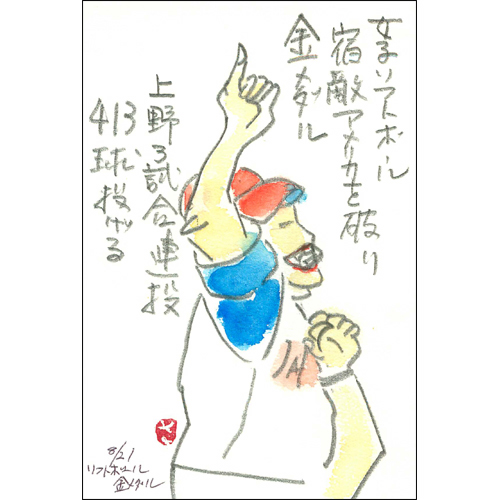 女子ソフトボール
宿敵アメリカを破り
金メダル
上野3試合連投
413
球投げる
8/21
ソフトボール
金メダル